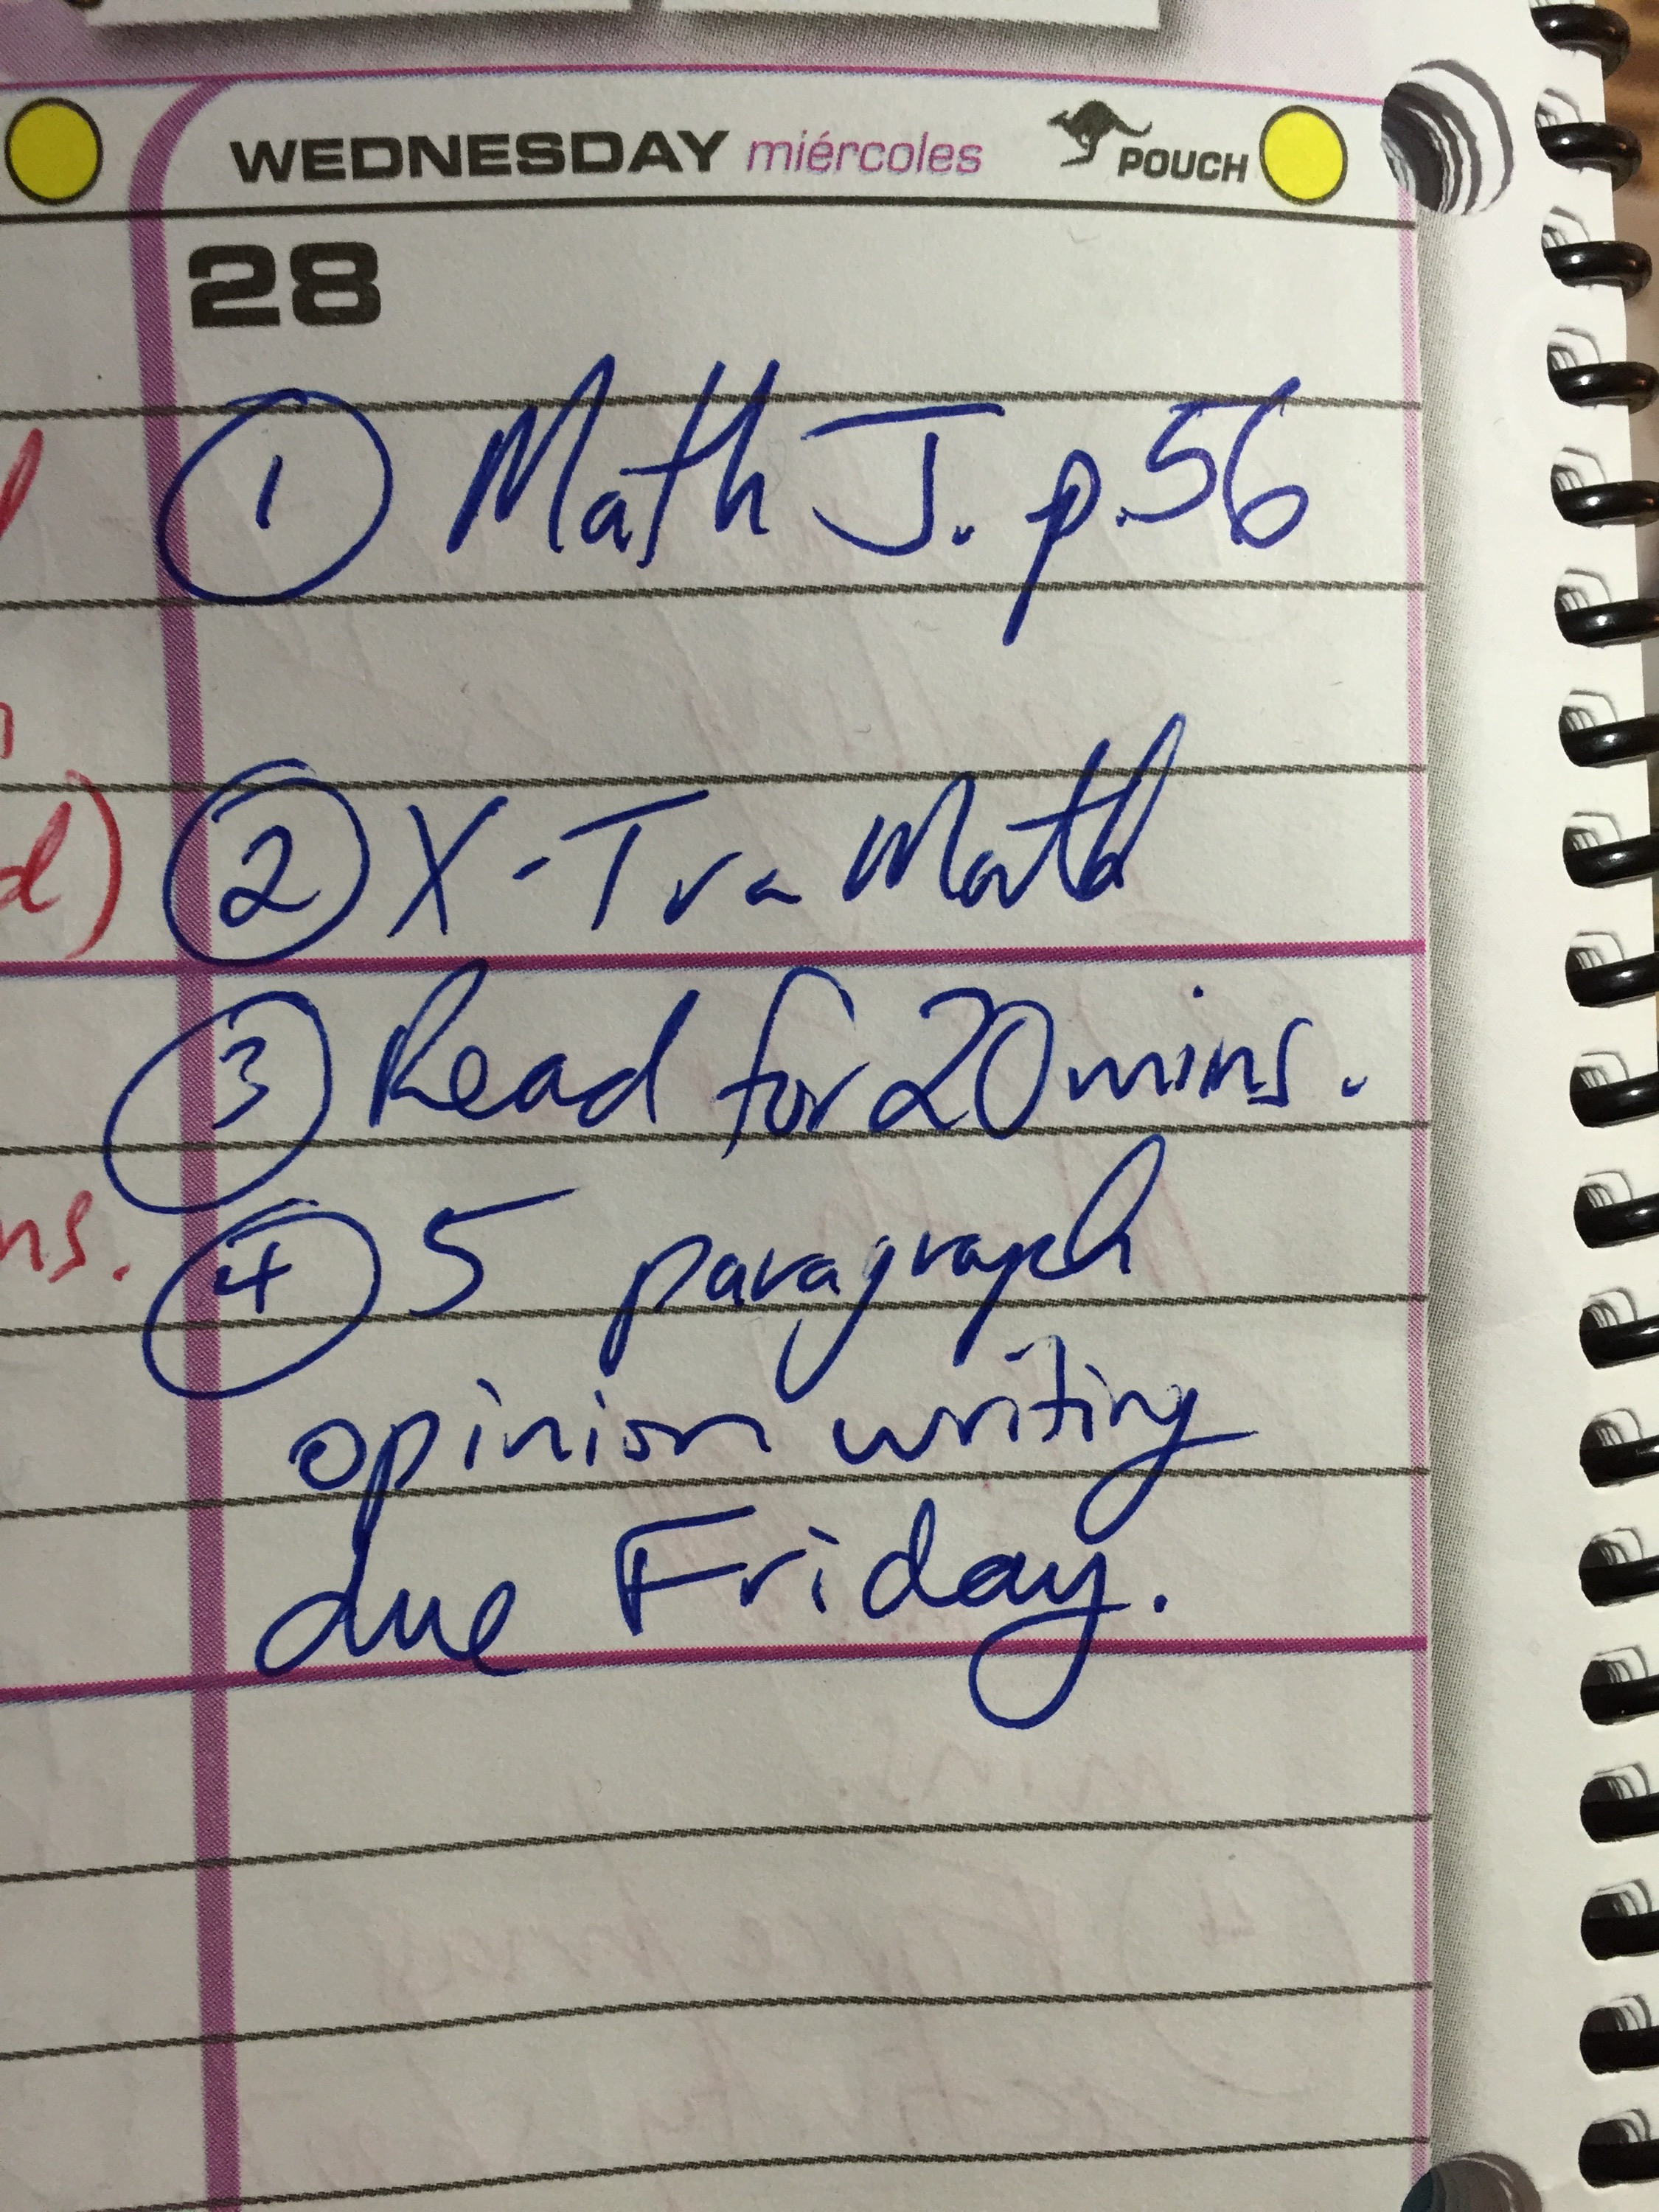 WEDNESDAY miércoles POUCH
28
1 Math J. p.56
2 X-Tra Math
d)
3 Read for 20 mins.
4 5 paragraph
ns.
opinion writing
due Friday.